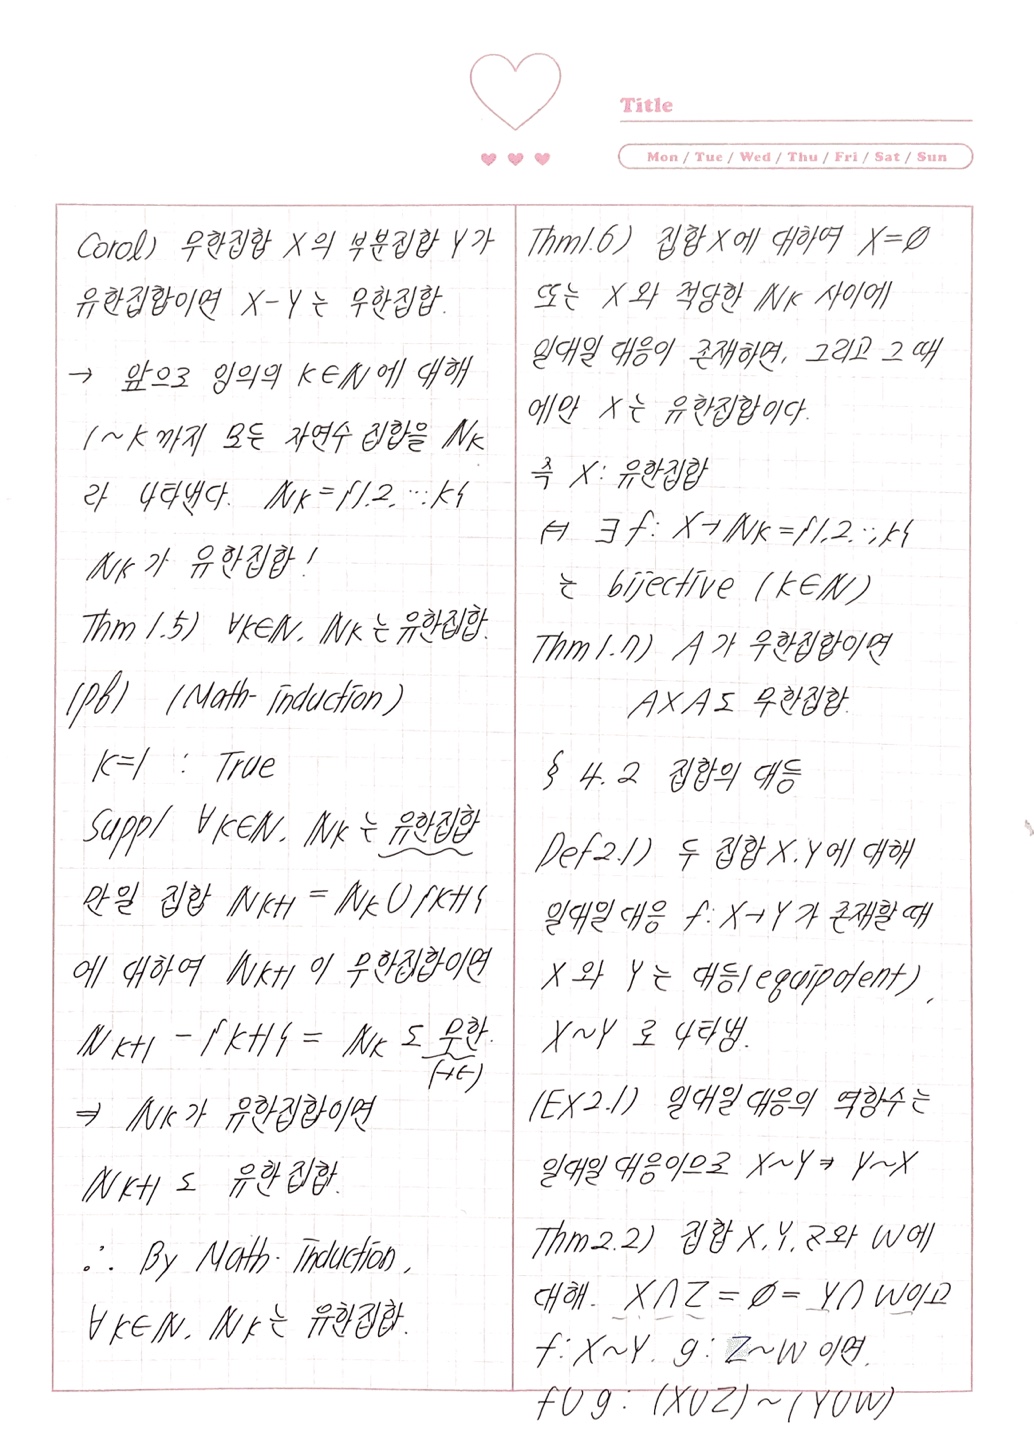 Title
Mon / Tue / Wed / Thu / Fri / Sat / Sun
Corol) 무한집합 X의 부분집합 Y가
유한집합이면 X-Y는 무한집합.
→ 앞으로 임의의 k∈ℕ에 대해
1~k까지 모든 자연수 집합을 ℕk
라 나타낸다. ℕk={1,2,⋯,k}
ℕk가 유한집합!
Thm 1.5) ∀k∈ℕ, ℕk는 유한집합.
(pf) (Math-induction)
k=1 : True
Supp/ ∀k∈ℕ, ℕk는 유한집합
만일 집합 ℕk+1 = ℕk∪{k+1}
에 대하여 ℕk+1이 무한집합이면
ℕk+1 - {k+1} = ℕk도 무한.
(→←)
⇒ ℕk가 유한집합이면
ℕk+1도 유한집합.
∴ By Math-induction,
∀k∈ℕ, ℕk는 유한집합.
Thm1.6) 집합X에 대하여 X=∅
또는 X와 적당한 ℕk 사이에
일대일 대응이 존재하면, 그리고 그 때
에만 X는 유한집합이다.
즉 X: 유한집합
⇔ ∃f: X→ℕk={1,2,⋯,k}
는 bijective (k∈ℕ)
Thm1.7) A가 무한집합이면
A×A도 무한집합.
§ 4.2 집합의 대등
Def2.1) 두 집합X,Y에 대해
일대일 대응 f: X→Y가 존재할 때
X와 Y는 대등(equipotent),
X~Y로 나타냄.
(EX2.1) 일대일대응의 역함수는
일대일 대응이므로 X~Y ⇒ Y~X
Thm2.2) 집합 X,Y,Z와 W에
대해. X∩Z = ∅ = Y∩W이고
f: X~Y, g: Z~W이면,
f∪g : (X∪Z)~(Y∪W)